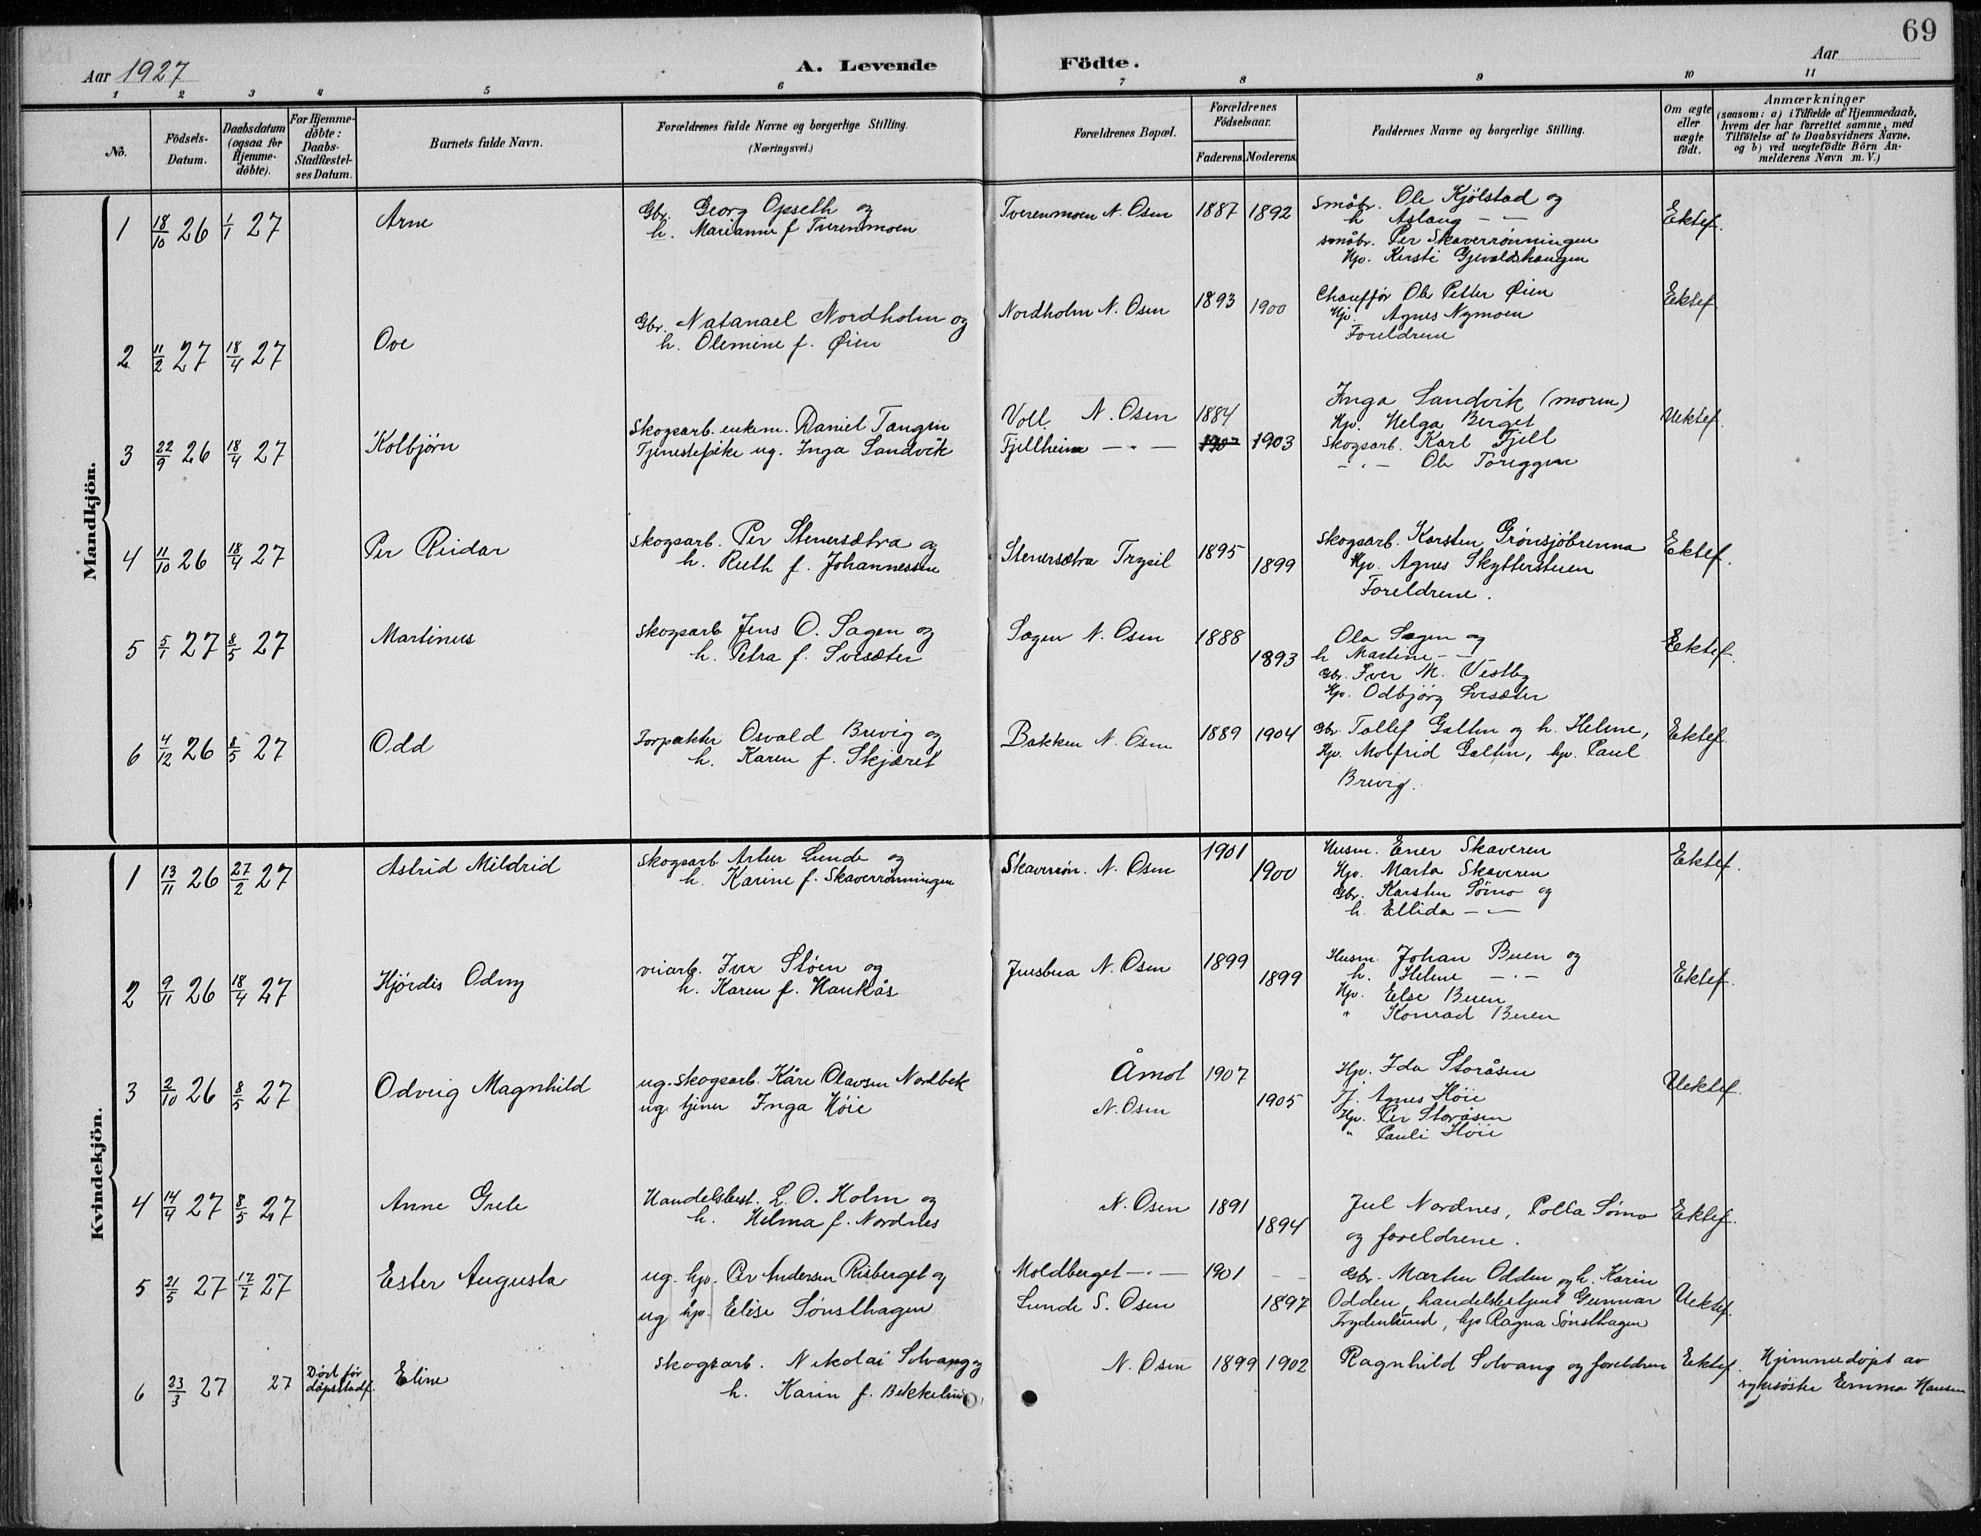 69
Aar 1927
A. Levende Födte.
Aar
1 2 3 4 5 6 7 8 9 10 11
No.
Födsels-Datum.
Daabsdatum (ogsaa for Hjemme-döbte).
For Hjemme-döbte: Daabs-Stadfæstel-ses Datum.
Barnets fulde Navn.
Forældrenes fulde Navne og borgerlige Stilling.
(Næringsvei.)
Forældrenes Bopæl.
Forældrenes Födselsaar.
Faderens. Moderens.
Faddernes Navne og borgerlige Stilling.
Om ægte eller uægte födt.
Anmærkninger
(saasom: a) i Tilfælde af Hjemmedaab, hvem der har forrettet samme, med Tilföielse af to Daabsvidners Navne, og b) ved uægtefödte Börn An-melderens Navn m. V.)
Mandkjön.
1 18/10 26 1/1 27 Arne
Gbr. Georg Opseth og
h. Marianne f Tverenmoen
Tverenmoen N. Osen 1887 1892
Småbr. Ole Kjölstad og
h Aslaug – –
småbr. Per Skaverrönningen
Hp. Kersti Gjevaldshaugen
Ektef.
2 11/2 27 18/4 27 Ove
Gbr. Natanael Nordholm og
h. Olemine f. Øien
Nordholm N. Osen 1893 1900
Chauffør Ole Petter Øien
Hp. Agnes Nymoen
Foreldrene
Ektef
3 22/9 26 18/4 27 Kolbjörn
Skogsarb. enkem. Daniel Tangen
Tjenestepike ug. Inga Sandvik
Voll N. Osen 1884
Fjellheim – " – 1903
Inga Sandvik (moren)
Hp. Helga Berget
Skogsarb. Karl Fjell
– " – Ole
Uektef.
4 11/10 26 18/4 27 Per Reidar
Skogsarb. Per Stenersætra og
h. Ruth f. Johannessen
Stenersætra Trysil 1895 1899
Skogsarb. Karsten Grönsjöbrenna
Hp. Agnes Skyttersteen
Foreldrene.
Ektef.
5 5/1 27 8/5 27 Martinus
Skogsarb Jens O. Sagen og
h. Petra f. Svesæter
Sagen N. Osen 1888 1893
Ola Sagen og
h Martine – –
Gbr. Iver M. Vestby
Hp. Odbjörg Svesæter
Ektef.
6 4/12 26 8/5 27 Odd
Forpakter Osvald Brevig og
h. Karen f. Skjæret
Bakken N. Osen 1889 1904
Gbr. Tollef Galten og h. Helene,
Hp. Molfrid Galten, hp. Paul
Brevig.
Ektef
Kvindekjön.
1 13/11 26 27/2 27 Astrid Mildrid
Skogsarb Artur Lunde og
h. Karine f. Skaverrönningen
Skaverrön. N. Osen 1901 1900
Husm. Ener Skaveren
Hp. Marta Skaveren
Gbr. Karsten Sømo og
h. Ellida – –
Ektef.
2 9/11 26 18/4 27 Hjördis Odny
veiarb. Iver Støen og
h. Karen f. Haukås
Jensbua N. Osen 1899 1899
Husm. Johan Buen og
h. Helene – " –
Hp. Else Buen
" Konrad Buen
Ektef.
3 2/10 26 8/5 27 Odveig Magnhild
ug. skogsarb. Kåre Olavsen Nordbek
ug. tjener Inga Höie
Åmot 1907
N. Osen 1905
Hp. Ida Storåsen
Tj. Agnes Höie
Hp. Per Storåsen
" Pauli Höie
Uektef.
4 14/4 27 8/5 27 Anne Grete
Handelsbest. L. O. Holm og
h. Helma f. Nordnes
N. Osen 1891 1894
Jul Nordnes, Polla Sømo
og foreldrene.
Ektef.
5 21/5 27 17/7 27 Ester Augusta
ug. hp. Per Andersen Risberget og
ug hp. Elise Sønsthagen
Moldberget – " – 1901
Lunde S. Osen 1897
Gbr. Martin Odden og h. Karin
Odden, handelsbetjent Gunnar
Frydenlund, hp. Ragna Sønsthagen
Uektef.
6 23/3 27 27 Död før dåpsstadf. Eline
Skogsarb. Nikolai Solvang og
h. Karin f. Bekkelund
N. Osen 1899 1902
Ragnhild Solvang og foreldrene
Ektef.
Hjemmedøpt av
sykesøster Emma Hansen